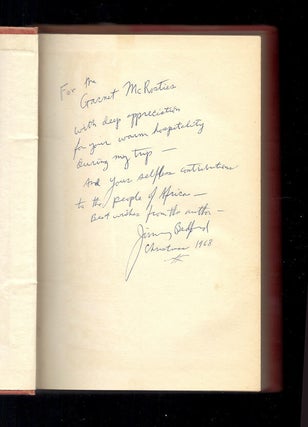 For the
Garnet McRosties
with deep appreciation
for your warm hospitality
during my trip —
And your selfless contributions
to the people of Africa —
Best wishes from the author —
Jimmy Bedford
Christmas 1968